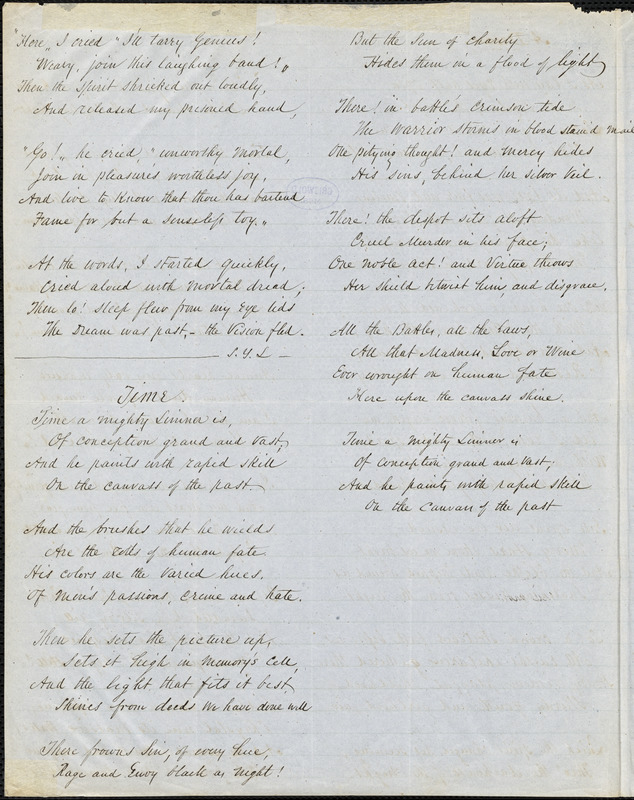 "Here," I cried "I'll tarry Genius!
Weary, join this laughing band!"
Then the Spirit shrieked out loudly,
And released my prisoned hand,
"Go!" he cried, "unworthy Mortal,
Join in pleasures worthless joy,
And live to know that thou has bartered
Fame for but a senseless toy."
At the words, I started quickly,
Cried aloud with mortal dread;
Then lo! sleep flew from my Eye lids
The Dream was past, – the Vision fled.
S.Y.L –
Time
Time a mighty Limner is,
Of conception grand and vast,
And he paints with rapid skill
On the canvass of the past
And the brushes that he wields
Are the rods of human fate
His colors are the varied hues,
Of men's passions, crime and hate.
Then he sets the picture up,
Sets it high in Memory's Cell,
And the light that fits it best
Shines from deeds we have done well
There frowns Sin, of every hue,
Rage and Envy black as night!
But the Sun of Charity
Hides them in a flood of light
There! in battle's crimson tide
The warrior storms in blood stained mail
One pitying thought! and Mercy hides
His sins, behind her silver Veil.
There! the despot sits aloft
Cruel Murder in his face;
One noble act! and Virtue throws
Her shield betwixt him, and disgrace.
All the Battles, all the Laws,
All that Madness, Love or Wine
Ever wrought on human fate
Here upon the canvass shine.
Time a mighty Limner is
Of conception grand and vast;
And he paints with rapid skill
On the Canvass of the past